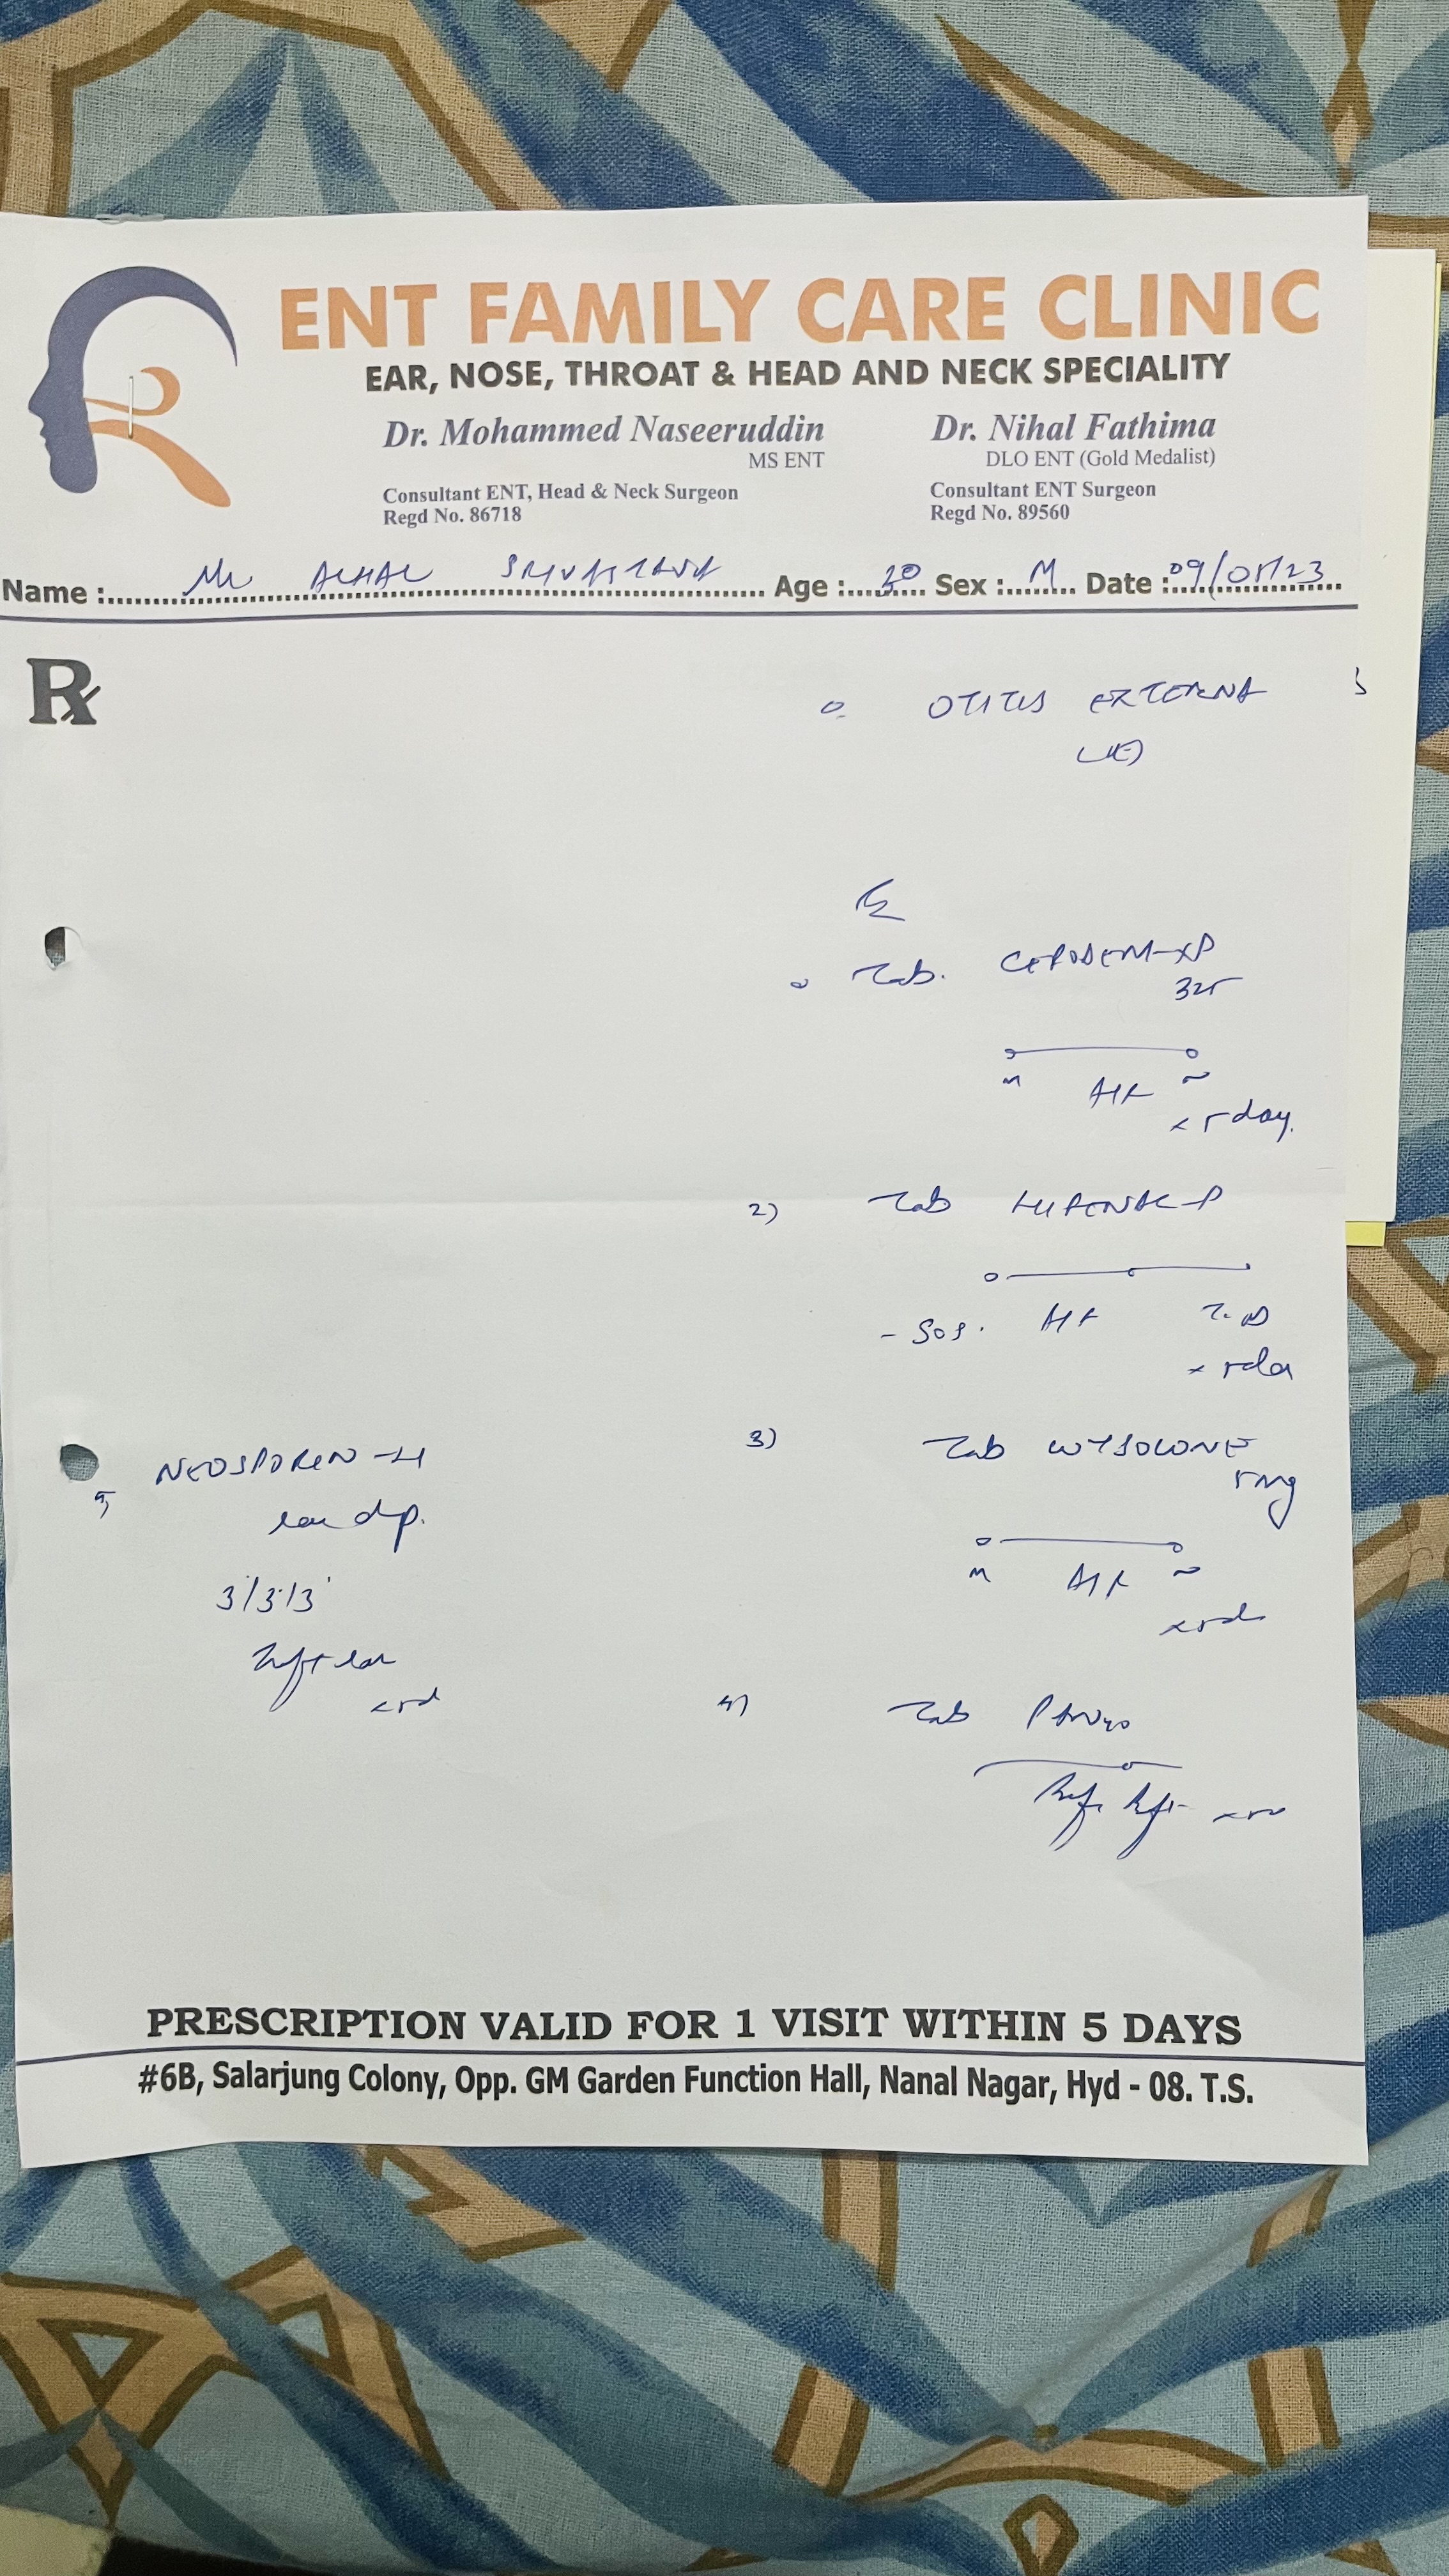 ENT FAMILY CARE CLINIC
EAR, NOSE, THROAT & HEAD AND NECK SPECIALITY
Dr. Mohammed Naseeruddin
MS ENT
Consultant ENT, Head & Neck Surgeon
Regd No. 86718
Dr. Nihal Fathima
DLO ENT (Gold Medalist)
Consultant ENT Surgeon
Regd No. 89560
Name : Mr Age : Sex : M Date : 09/05/23
Rx
OTITIS EXTERNA
Rx
Tab. CEPODEM-XP
325
M A/F N
x 5 day.
2) Tab -P
- SOS. A/F
3) Tab WYSOLONE
5mg
M A/F N
x 5d
4) Tab PAN40
x 5d
5) NEOSPORIN-H
ear dp.
3/3/3
Left ear
x 5d
PRESCRIPTION VALID FOR 1 VISIT WITHIN 5 DAYS
#6B, Salarjung Colony, Opp. GM Garden Function Hall, Nanal Nagar, Hyd - 08. T.S.